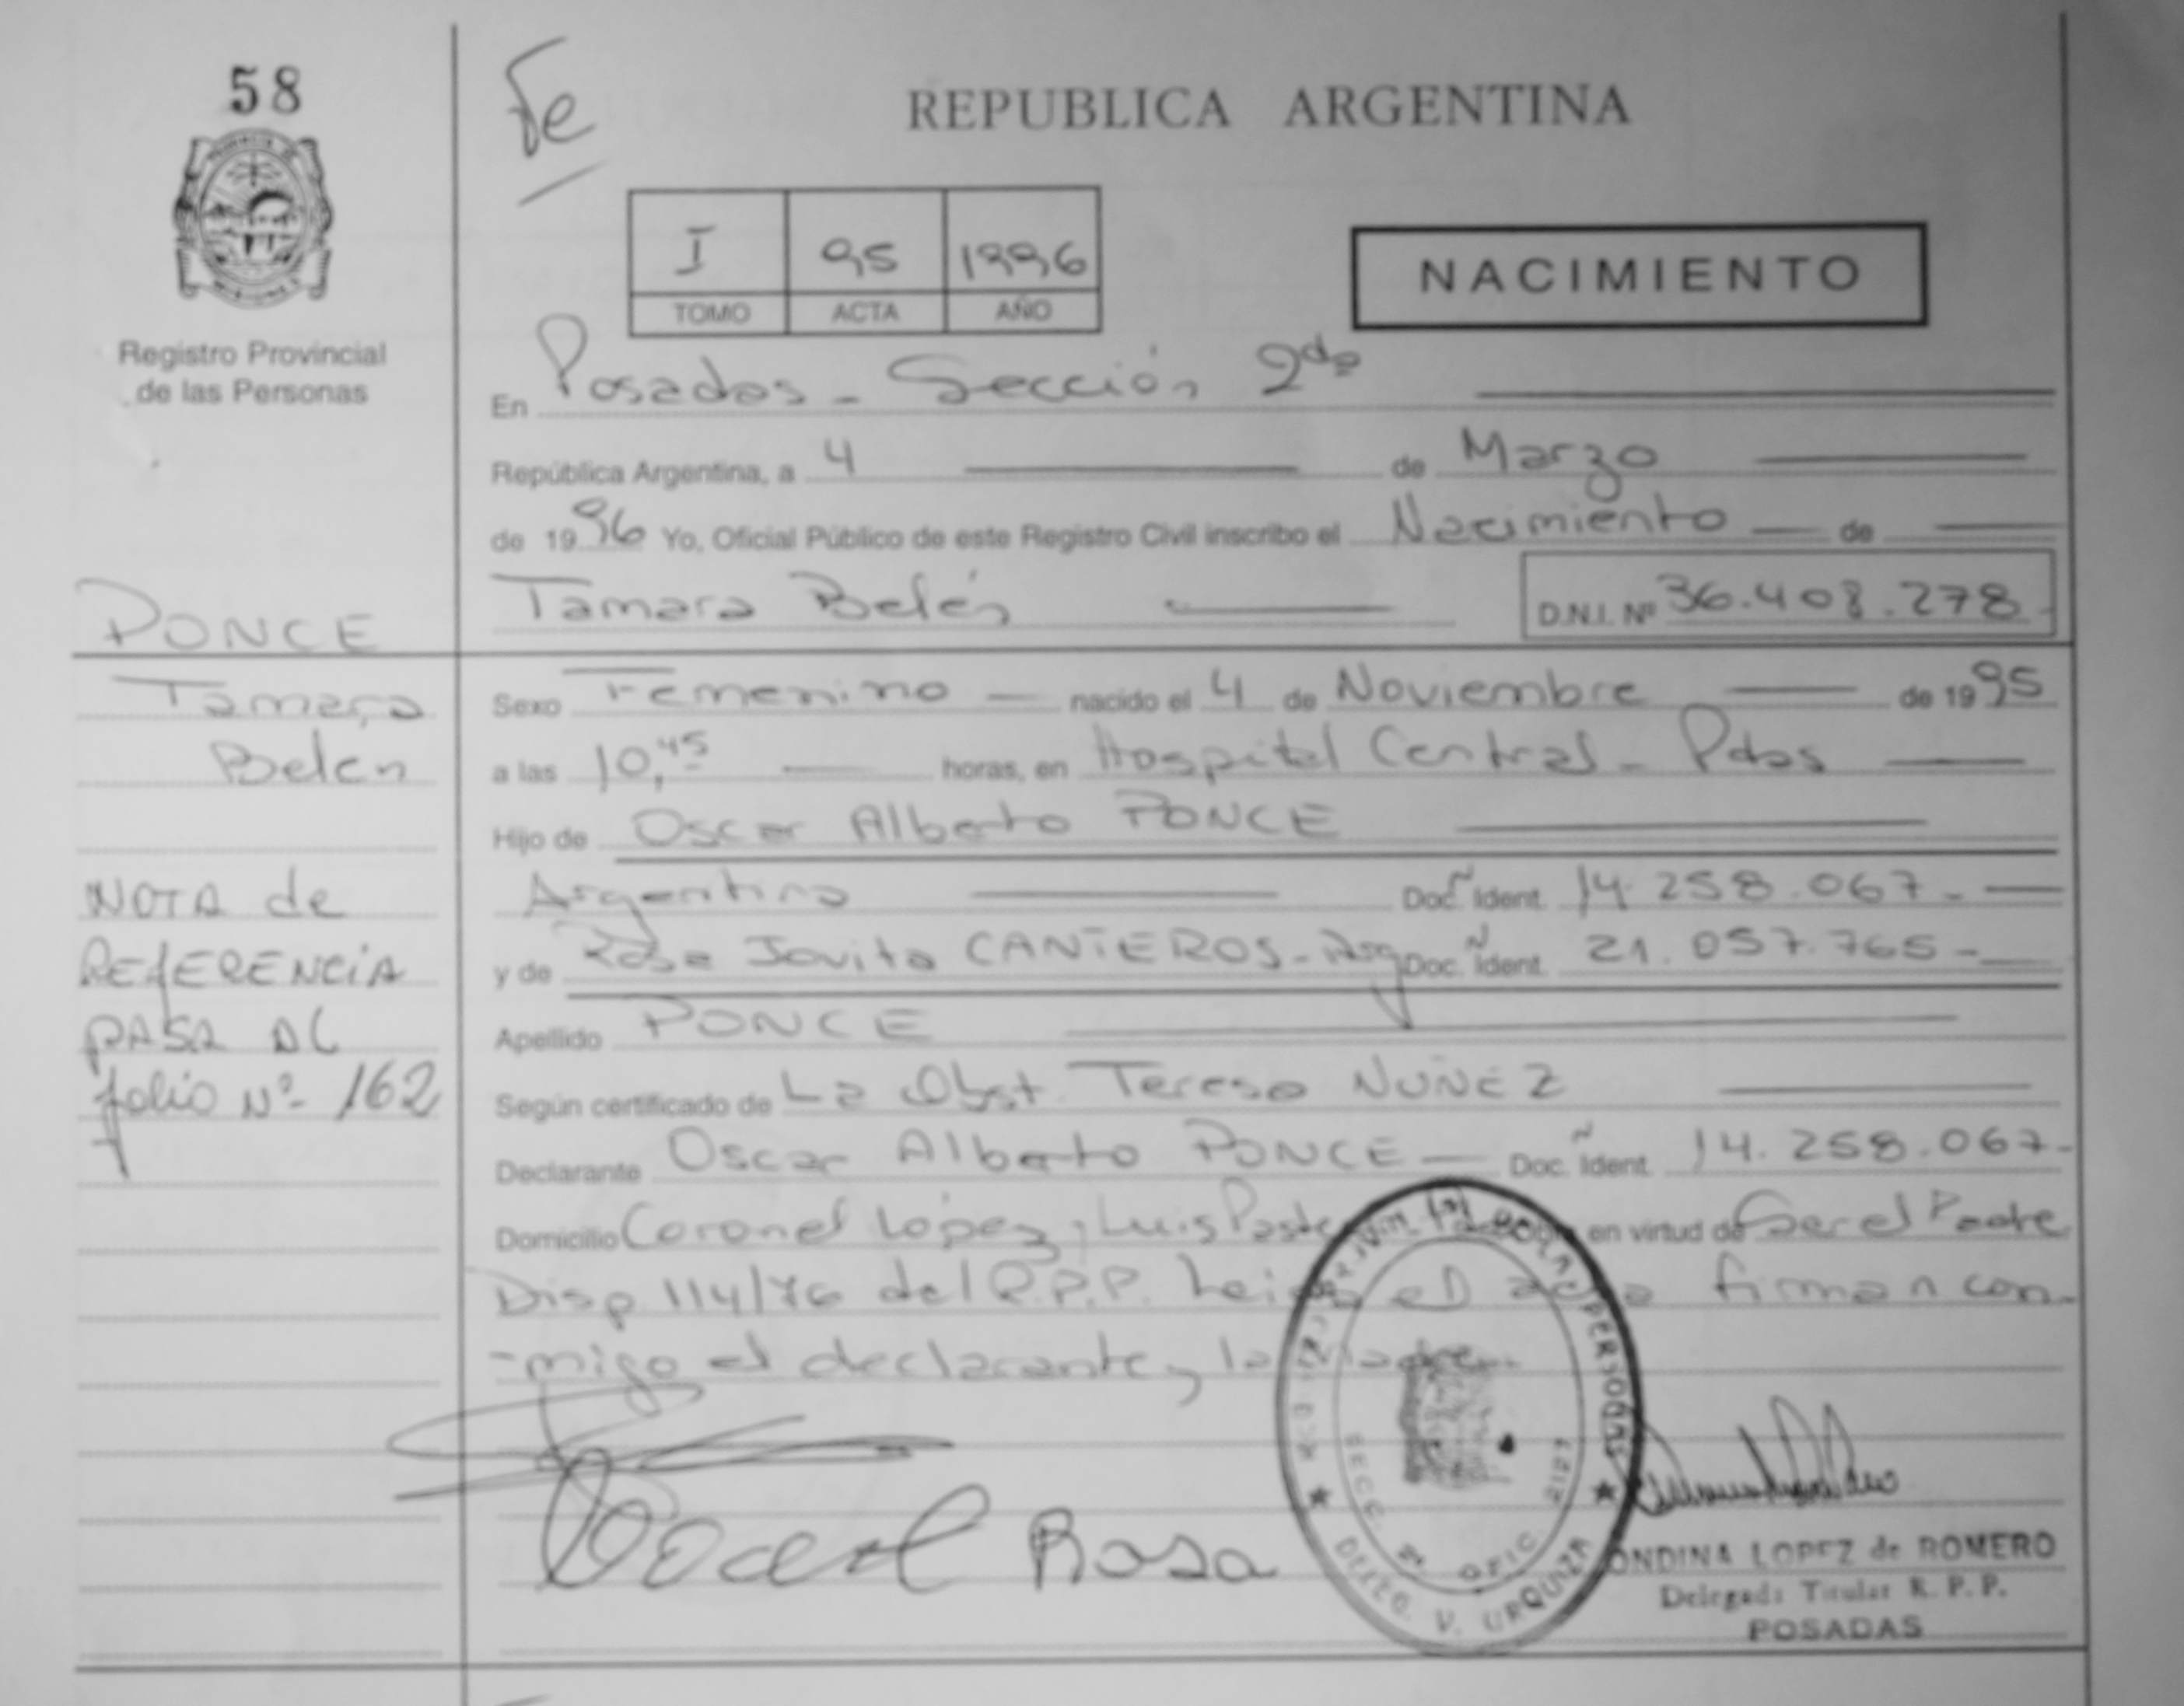 58
Fe
REPUBLICA ARGENTINA
I 95 1996
TOMO ACTA AÑO
NACIMIENTO
Registro Provincial
de las Personas
En Posadas - Sección 2da
República Argentina, a 4 de Marzo
de 1996 Yo, Oficial Público de este Registro Civil inscribo el Nacimiento de
PONCE
Tamara Belén
D.N.I. Nº 36.408.278
Tamara
Belen
Sexo Femenino nacido el 4 de Noviembre de 1995
a las 10,45 horas, en Hospital Central - Pdas
Hijo de Oscar Alberto PONCE
Argentino Doc. Ident. 14.258.067-
y de Rosa Jovita CANTEROS - Arg Doc. Ident. 21.057.765-
Apellido PONCE
Según certificado de La Obst. Teresa NUÑEZ
Declarante Oscar Alberto PONCE Doc. Ident. 14.258.067-
Domicilio Coronel López y Luis en virtud de Ser el Padre
Disp 114/76 del R.P.P. firman con-
-migo el declarante y la
NOTA de
REFERENCIA
PASA AL
folio Nº 162
Rosa
SECC. 2ª OFIC
DELEG. V. URQUIZA
ONDINA LOPEZ de ROMERO
Delegada Titular R. P. P.
POSADAS